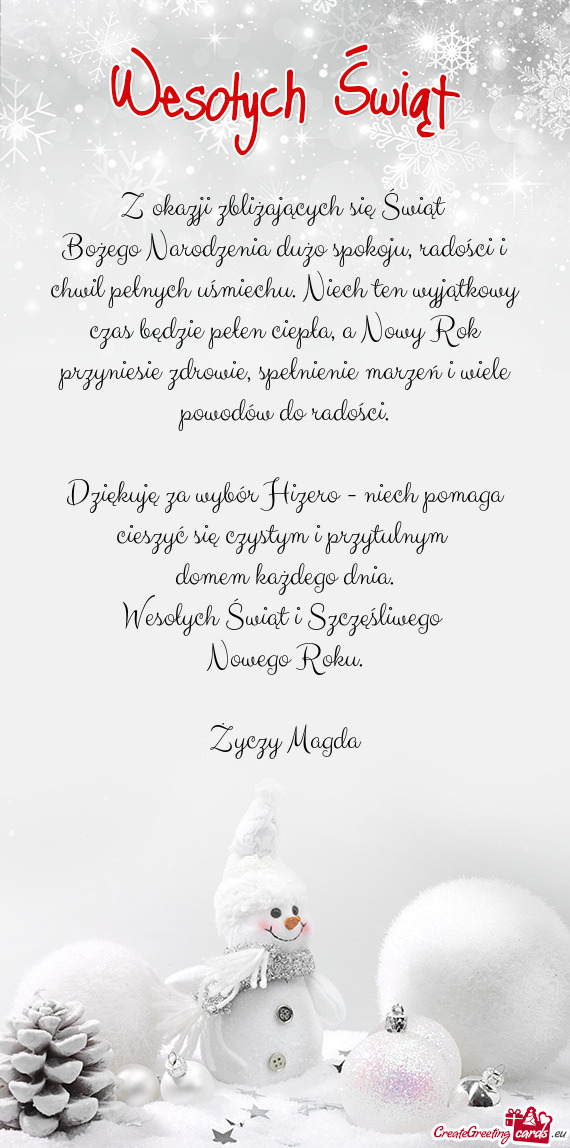 Wesołych Świąt
Z okazji zbliżających się Świąt
Bożego Narodzenia dużo spokoju, radości i
chwil pełnych uśmiechu. Niech ten wyjątkowy
czas będzie pełen ciepła, a Nowy Rok
przyniesie zdrowie, spełnienie marzeń i wiele
powodów do radości.
Dziękuję za wybór Hizero - niech pomaga
cieszyć się czystym i przytulnym
domem każdego dnia.
Wesołych Świąt i Szczęśliwego
Nowego Roku.
Życzy Magda
CreateGreeting cards .eu